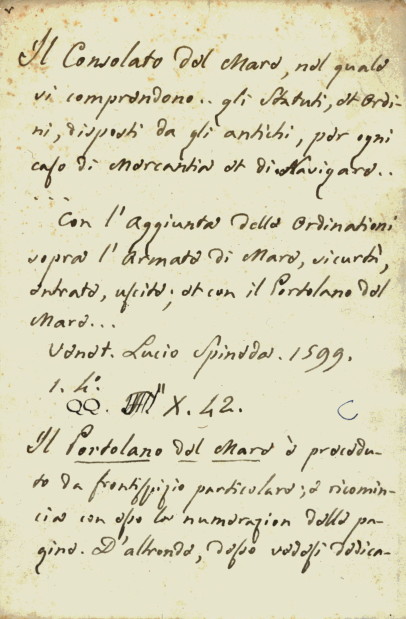 Il Consolato del Mare, nel quale
si comprendono.. gli Statuti, et Ordi-
ni, disposti da gli antichi, per ogni
caso di Mercantia et di Navigare..
... Con l'Aggiunta delle Ordinationi
sopra l'Armate di Mare, sicurtà,
entrate, uscite; et con il Portolano del
Mare...
Venet. Lucio Spineda. 1599.
1. 4º.
QQ. X. 42.
Il Portolano del Mare è precedu-
to da frontispizio particolare; e ricomin-
cia con esso la numerazion delle pa-
gine. D'altronde, desso vedesi dedica-